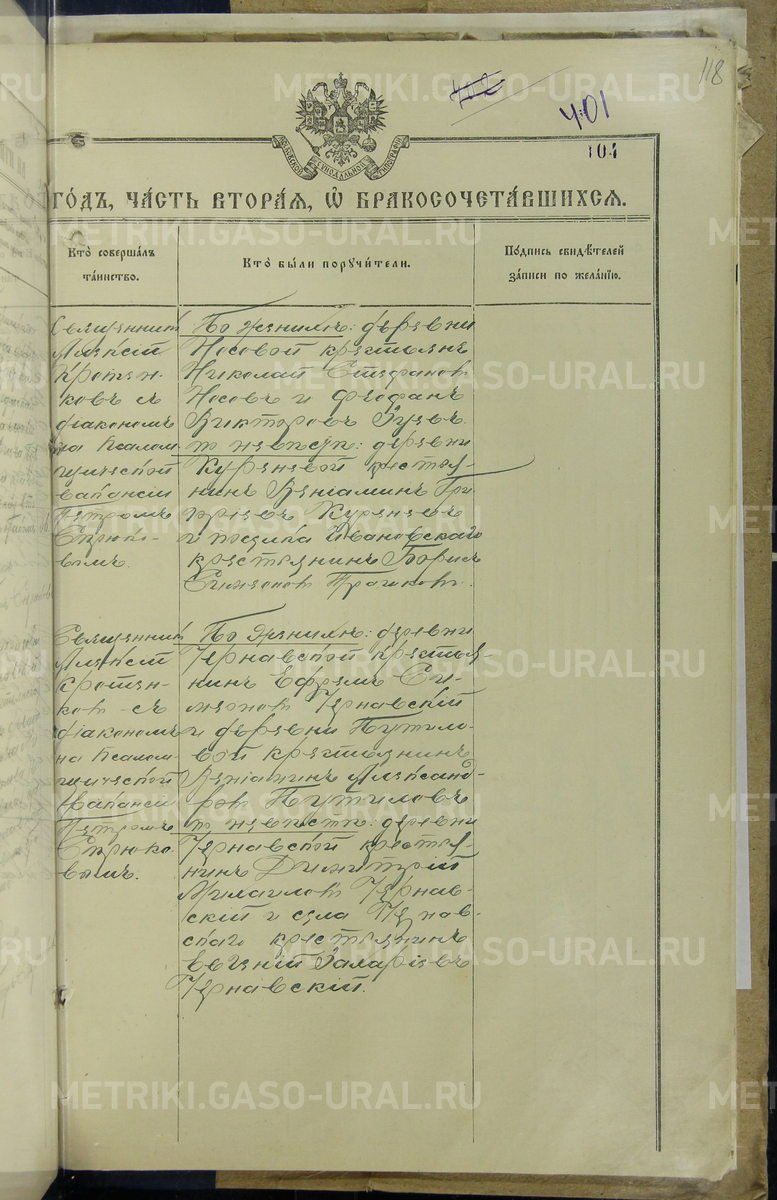 118
402
401
104
ГО́ДЪ, ЧА́СТЬ ВТОРА́Я, Ѽ БРАКОСОЧЕТА́ВШИХСЯ.
Кто̀ соверша́лъ
та́инство.
Кто̀ бы́ли поручи́тели.
По́дпись свидѣ́телей
за́писи по жела́нїю.
Священникъ
Алексій
Кротен-
ковъ съ
діакономъ
на псалом-
щической
вакансіи
Петромъ
Бирюко-
вымъ.
По женихѣ: деревни
Носовой крестьянъ
Николай Стефановъ
Носовъ и Феофанъ
Викторовъ Зуевъ.
по невѣстѣ: деревни
Куреневой крестья-
нинъ Веніаминъ Гри-
горіевъ Куреневъ
и поселка Ивановскаго
крестьянинъ Борисъ
Симеоновъ
Священникъ
Алексій
Кротен-
ковъ съ
діакономъ
на псалом-
щической
вакансіи
Петромъ
Бирюко-
вымъ.
По женихѣ: деревни
Чернавской крестья-
нинъ Ефремъ Си-
меоновъ Чернавскій
и деревни Путило-
вой крестьянинъ
Веніаминъ Александ-
ровъ Путиловъ
по невѣстѣ: деревни
Чернавской крестья-
нинъ Димитрій
Михаиловъ Чернав-
скій и села Чернав-
скаго крестьянинъ
Евгеній Захаріевъ
Чернавскій.
METRIKI.GASO-URAL.RU